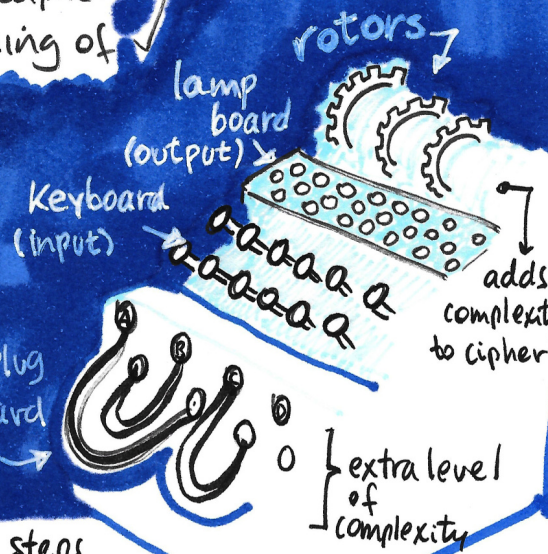 ing of
rotors
lamp
board
(output)
Keyboard
(input)
adds
to cipher
A
B
C
D
extra level
of
complexity
steps